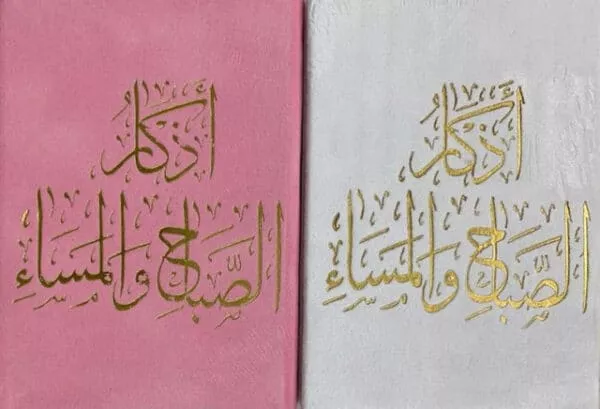 أذكار
الصَّبَاحِ وَالْمَسَاءِ
أذكار
الصَّبَاحِ وَالْمَسَاءِ